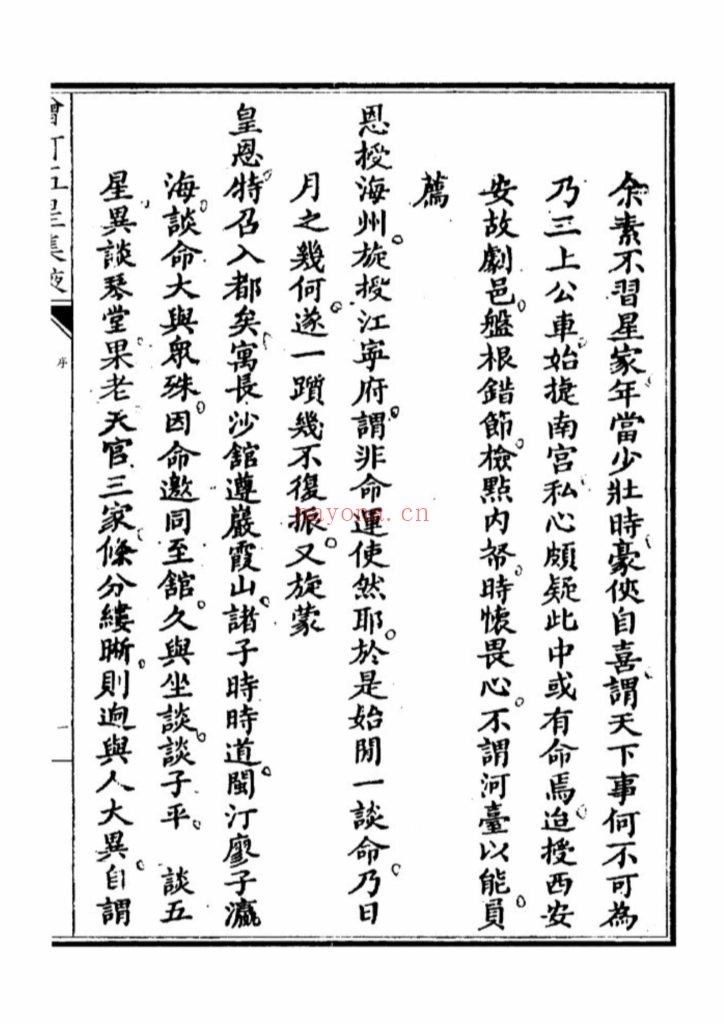 余素不習星家年當少壯時豪俠自喜謂天下事何不可為
乃三上公車始捷南宮私心頗疑此中或有命焉迨授西安
安故劇邑盤根錯節檢點內帑時懷畏心不謂河臺以能員
薦
恩授海州旋授江寧府謂非命運使然耶於是始閒一談命乃日
月之幾何遂一躓幾不復振又旋蒙
皇恩特召入都矣寓長沙舘遵巖霞山諸子時時道閩汀廖子瀛
海談命大與衆殊因命邀同至舘久與坐談談子平 談五
星異談琴堂果老天官三家條分縷晰則逈與人大異自謂
增訂五星集腋
序
一
nayona.cn